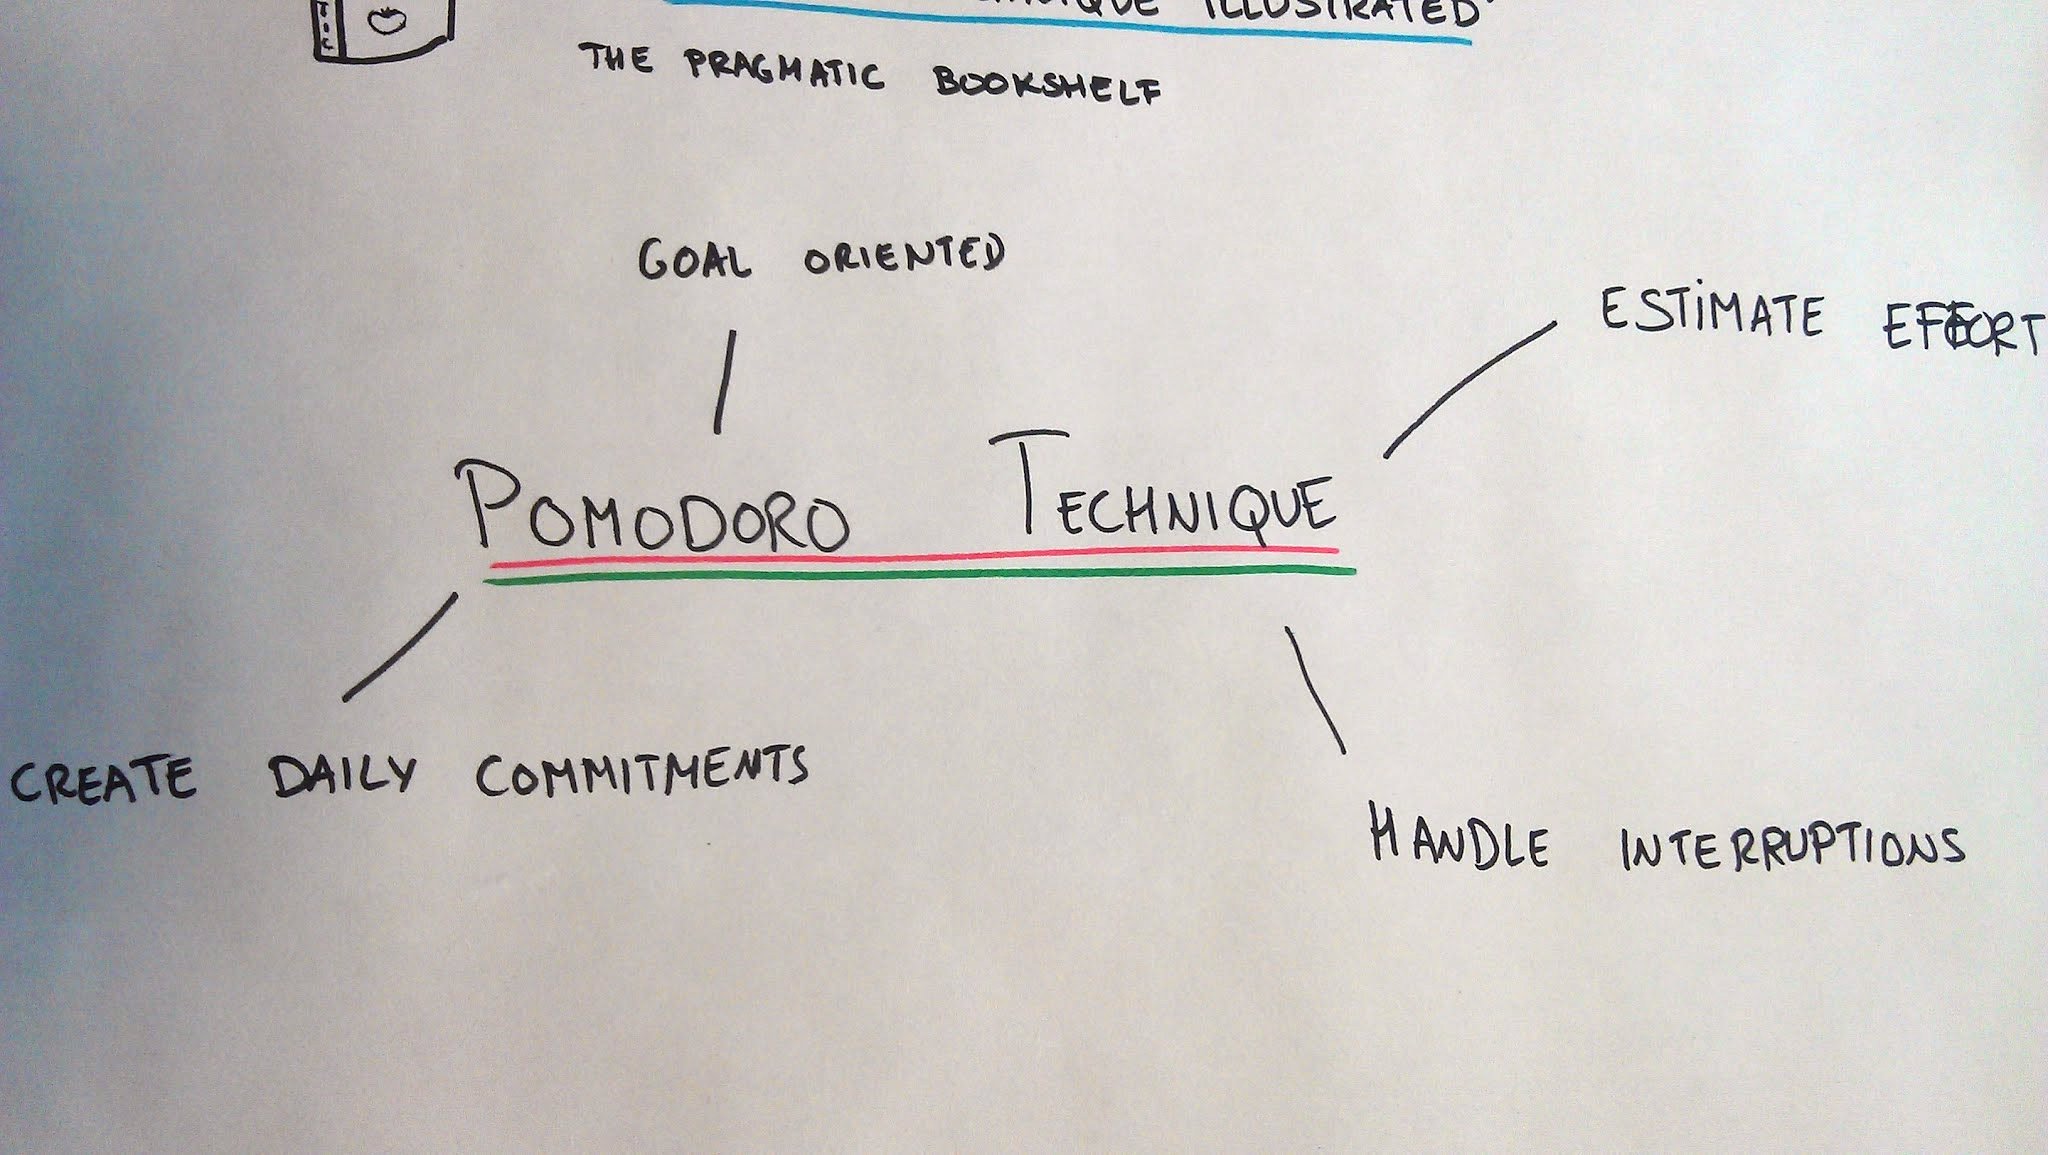 ILLUSTRATED
THE PRAGMATIC BOOKSHELF
GOAL ORIENTED
ESTIMATE EFFORT
POMODORO TECHNIQUE
CREATE DAILY COMMITMENTS
HANDLE INTERRUPTIONS